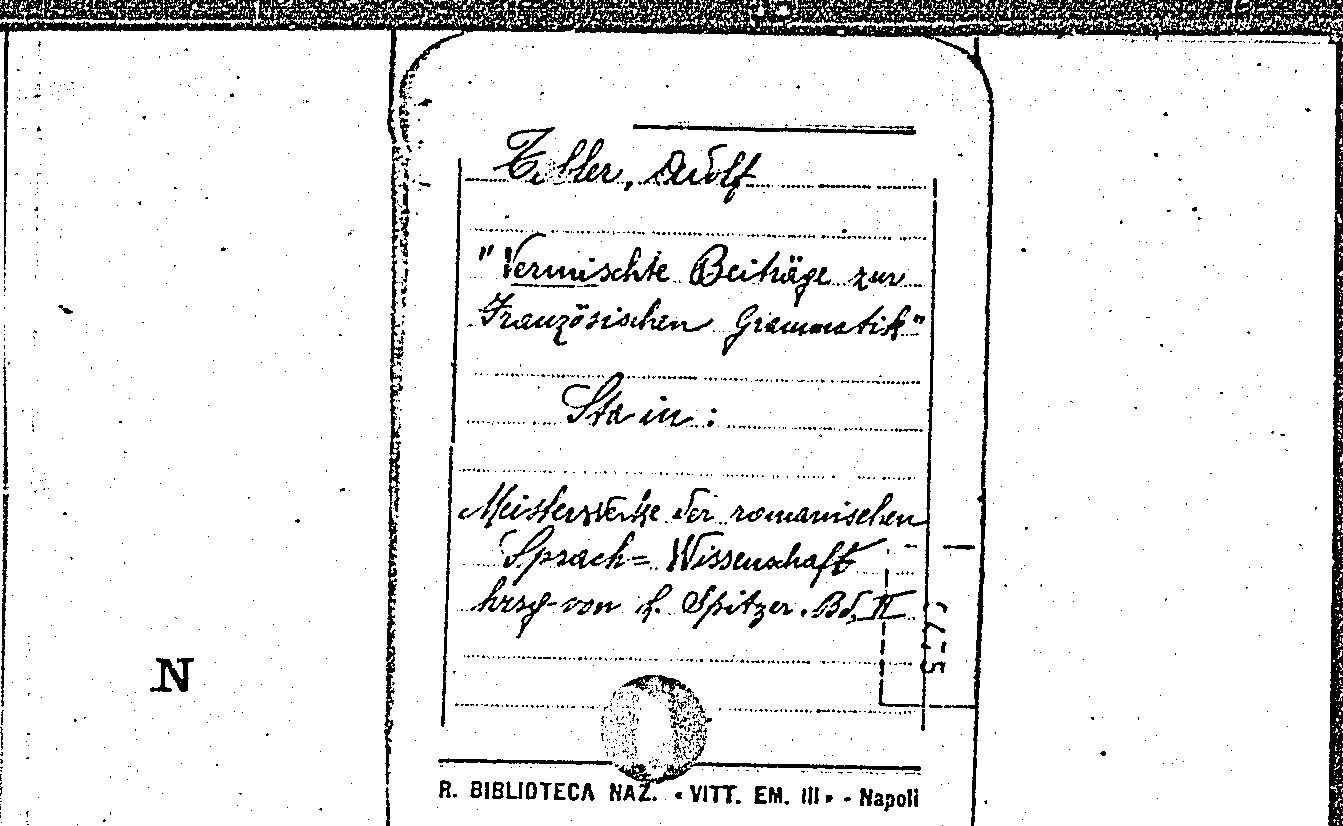 Tobler, Adolf
"Vermischte Beiträge zur
Französischen Grammatik"
Sta in:
Meisterwerke der romanischen
Sprach= Wissenschaft
hrsg von L. Spitzer. Bd. II
N
R. BIBLIOTECA NAZ. « VITT. EM. III » - Napoli